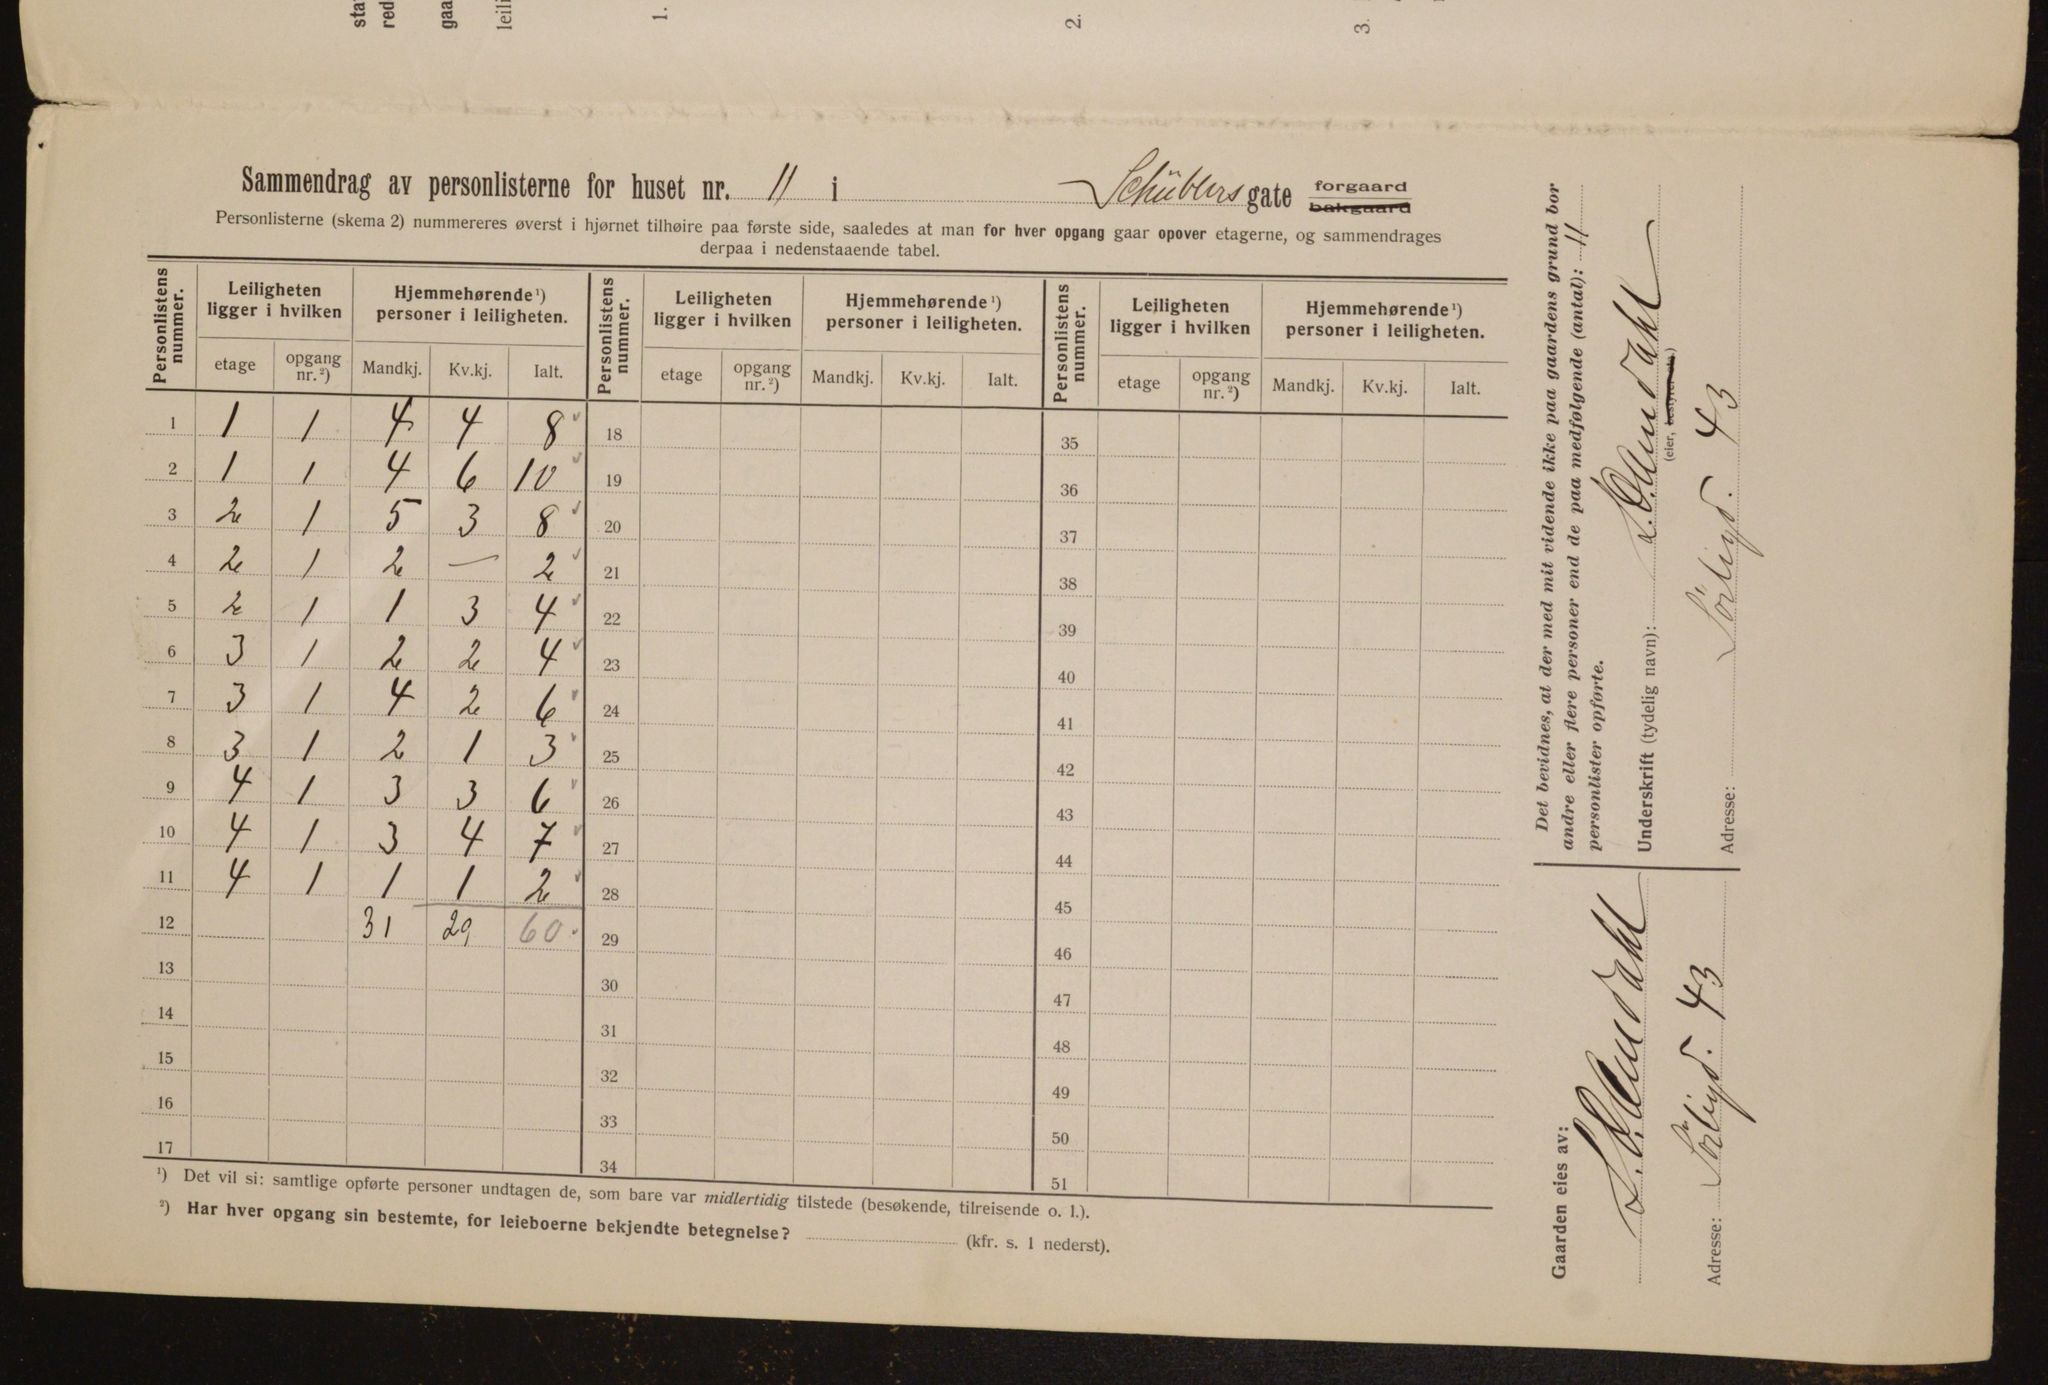 1.
2.
3.
Sammendrag av personlisterne for huset nr. 11 i Schüblers gate forgaard bakgaard
Personlisterne (skema 2) nummereres øverst i hjørnet tilhøire paa første side, saaledes at man for hver opgang gaar opover etagerne, og sammendrages
derpaa i nedenstaaende tabel.
Personlistens nummer. Leiligheten ligger i hvilken Hjemmehørende ¹) personer i leiligheten. Personlistens nummer. Leiligheten ligger i hvilken Hjemmehørende ¹) personer i leiligheten. Personlistens nummer. Leiligheten ligger i hvilken Hjemmehørende ¹) personer i leiligheten.
etage opgang nr. ²) Mandkj. Kv.kj. Ialt. etage opgang nr. ²) Mandkj. Kv.kj. Ialt. etage opgang nr. ²) Mandkj. Kv.kj. Ialt.
1 1 1 4 4 8 18 35
2 1 1 4 6 10 19 36
3 2 1 5 3 8 20 37
4 2 1 2 — 2 21 38
5 2 1 1 3 4 22 39
6 3 1 2 2 4 23 40
7 3 1 4 2 6 24 41
8 3 1 2 1 3 25 42
9 4 1 3 3 6 26 43
10 4 1 3 4 7 27 44
11 4 1 1 1 2 28 45
12 31 29 60 29 46
13 30 47
14 31 48
15 32 49
16 33 50
17 34 51
¹) Det vil si: samtlige opførte personer undtagen de, som bare var midlertidig tilstede (besøkende, tilreisende o. l.).
²) Har hver opgang sin bestemte, for leieboerne bekjendte betegnelse? (kfr. s. 1 nederst).
Det bevidnes, at der med mit vidende ikke paa gaardens grund bor
andre eller flere personer end de paa medfølgende (antal): 11
personlister opførte.
Underskrift (tydelig navn):
(eier, bestyrer etc.)
Adresse: 43
Gaarden eies av:
Adresse: 43